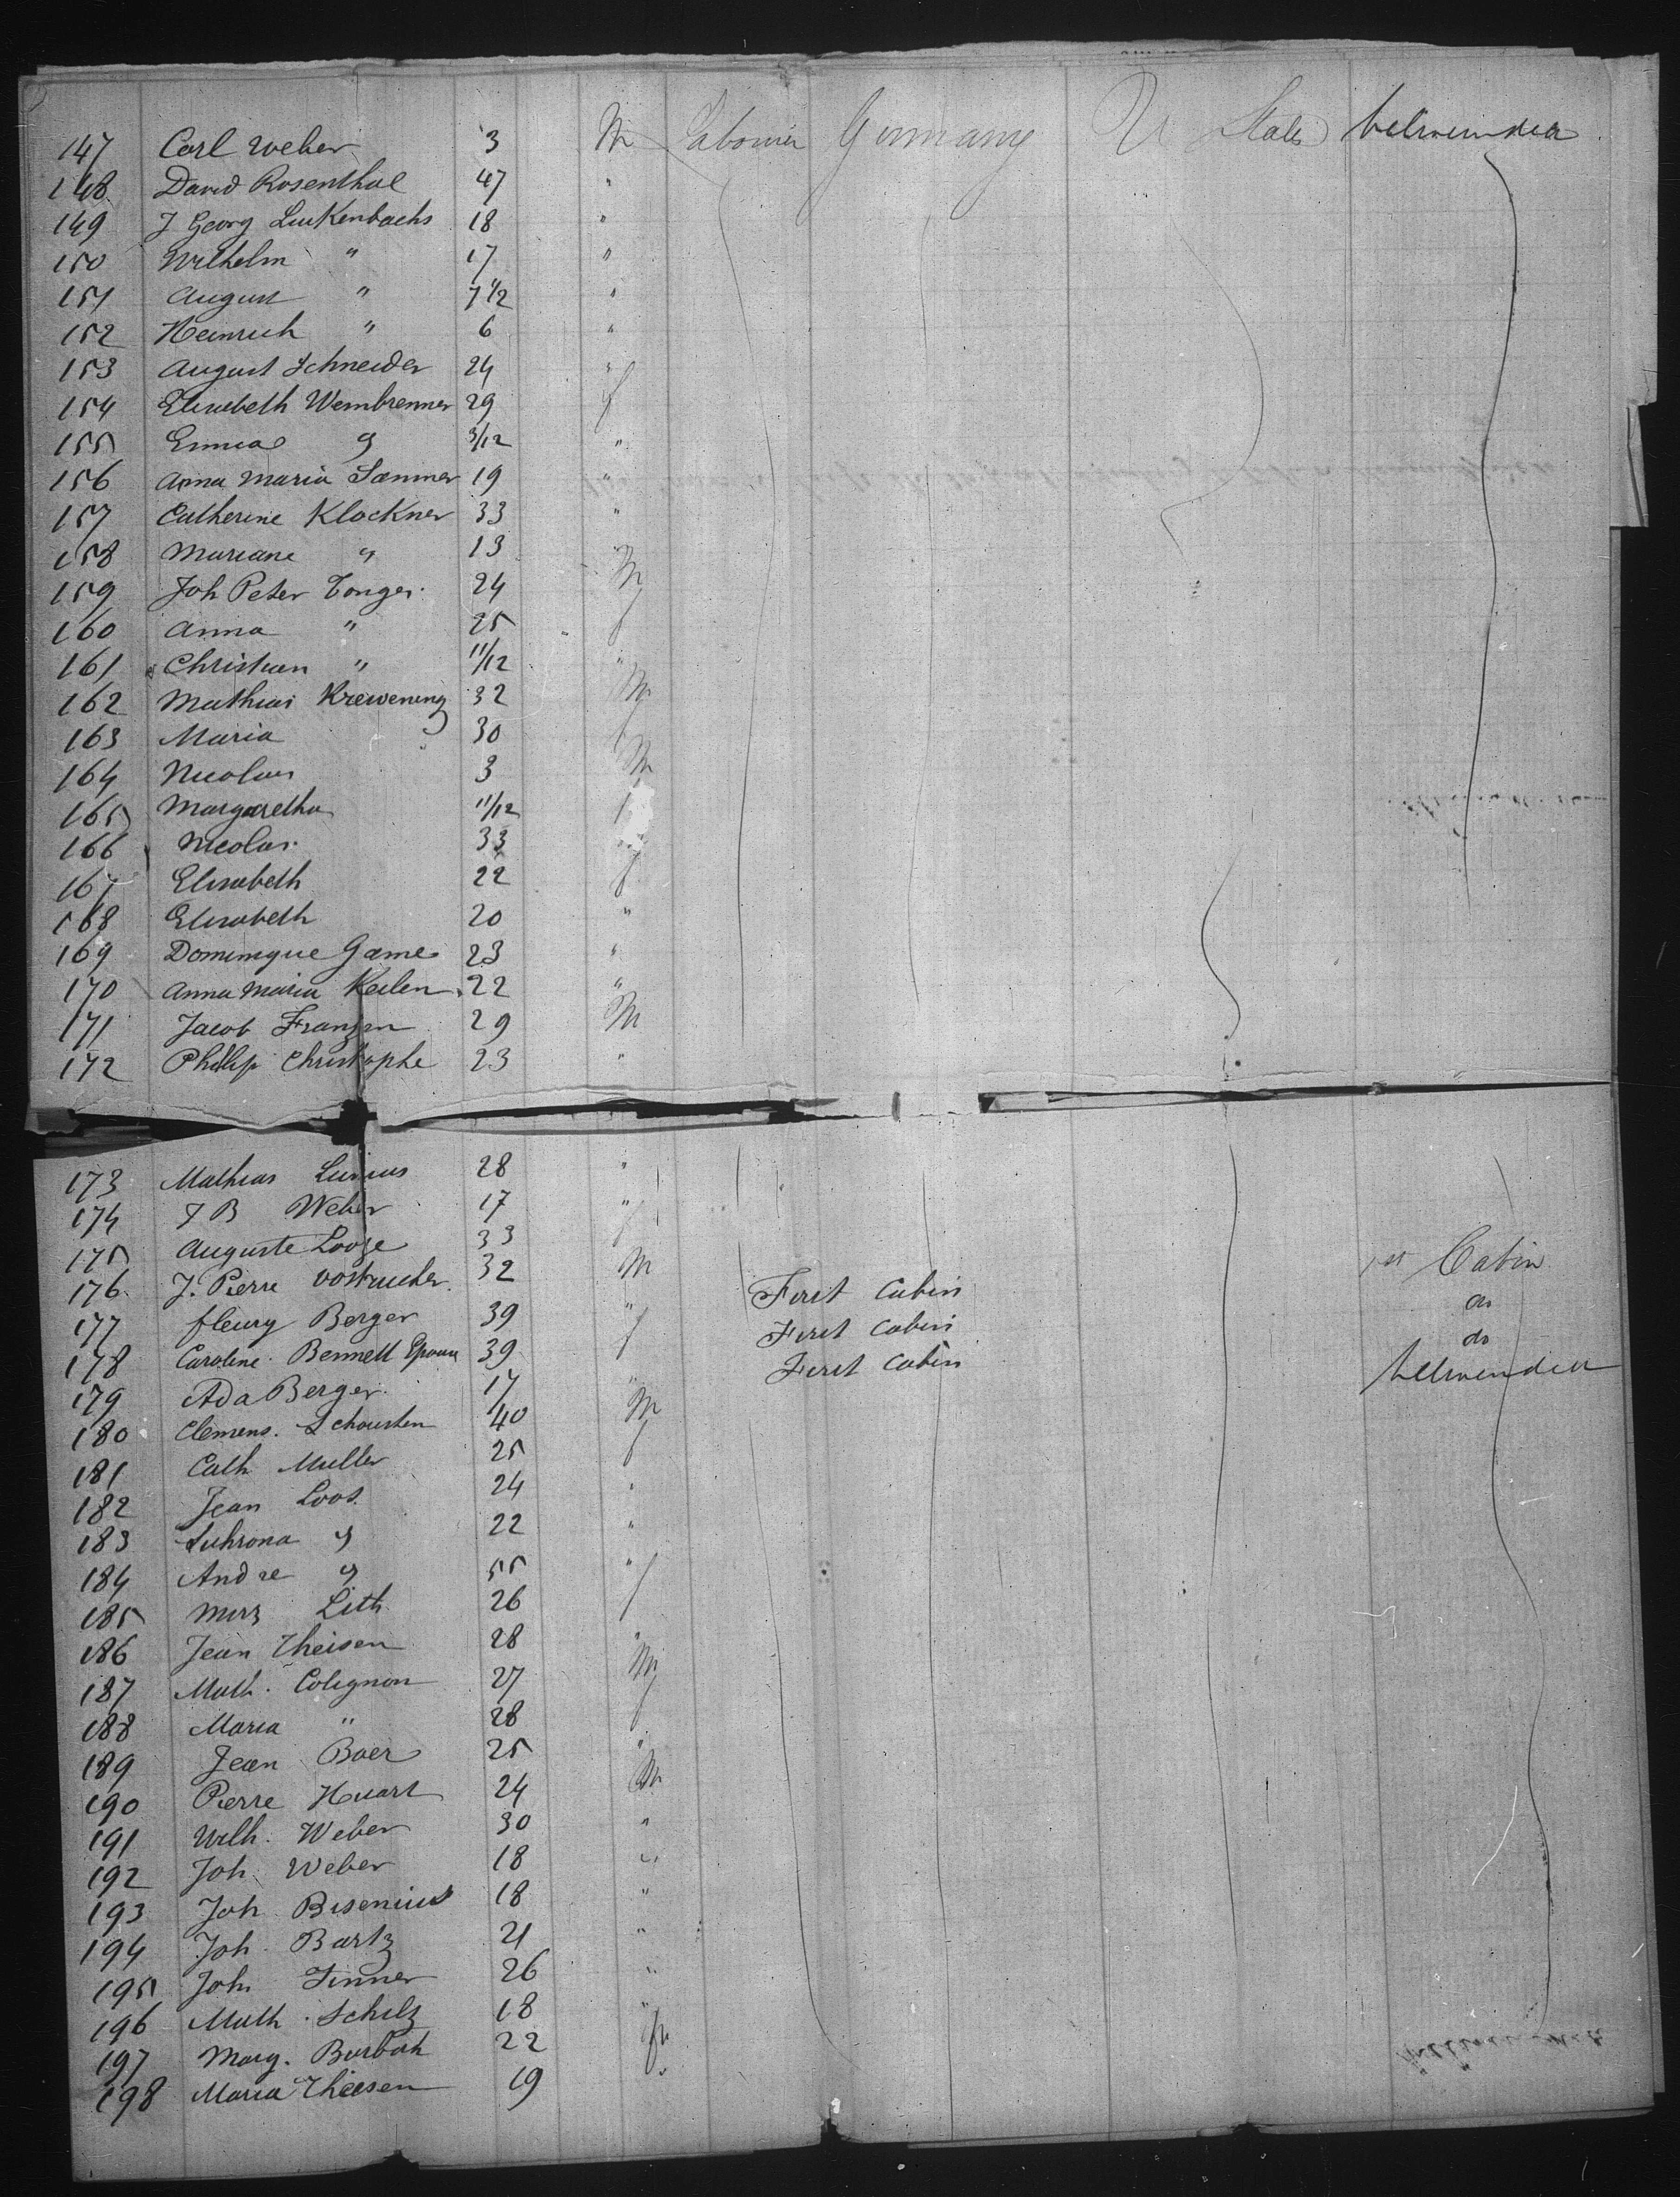 147 Carl Weber 3 M Labourer Germany U States
148 David Rosenthal 47 "
149 J Georg Luckenbachs 18 "
150 Wilhelm " 17 "
151 August " 7 1/2 "
152 Heinrich " 6 "
153 August Schneider 24 "
154 Elisabeth Weinbrenner 29 f
155 Emma " 3/12 "
156 Anna Maria Sanner 19 "
157 Catherine Klockner 33 "
158 Mariane " 13 "
159 Joh Peter Conger 24 M
160 Anna " 25 f
161 Christian " 11/12 "
162 Mathias Krewening 32 M
163 Maria 30 f
164 Nicolas 3 M
165 Margaretha 11/12 f
166 Nicolas 33
167 Elisabeth 22 f
168 Elisabeth 20 "
169 Dominique Game 23 "
170 Anna Maria Keilen 22 "
171 Jacob Franzen 29 M
172 Phillip Christophe 23 "
173 Mathias Lunius 28 "
174 J B Weber 17 "
175 Auguste Looze 33 f
176 J. Pierre 32 M First Cabin 1st Cabin
177 fleury Berger 39 " First Cabin do
178 Caroline Bennett Epouse 39 f First Cabin do
179 Ada Berger 17 "
180 Clemens Schousten 40 M
181 Cath Muller 25 f
182 Jean Loos 24 "
183 22 "
184 Andre " 55 "
185 Lith 26 f
186 Jean Theisen 28 "
187 Math. Colignon 27 M
188 Maria " 28 f
189 Jean Baer 25 "
190 Pierre Huart 24 M
191 Wilh. Weber 30 "
192 Joh. Weber 18 "
193 Joh Bisenius 18 "
194 Joh. Bartz 21 "
195 Joh Sinner 26 "
196 Math. Schilz 18 "
197 Marg. Barbah 22 f
198 Maria Theisen 19 "